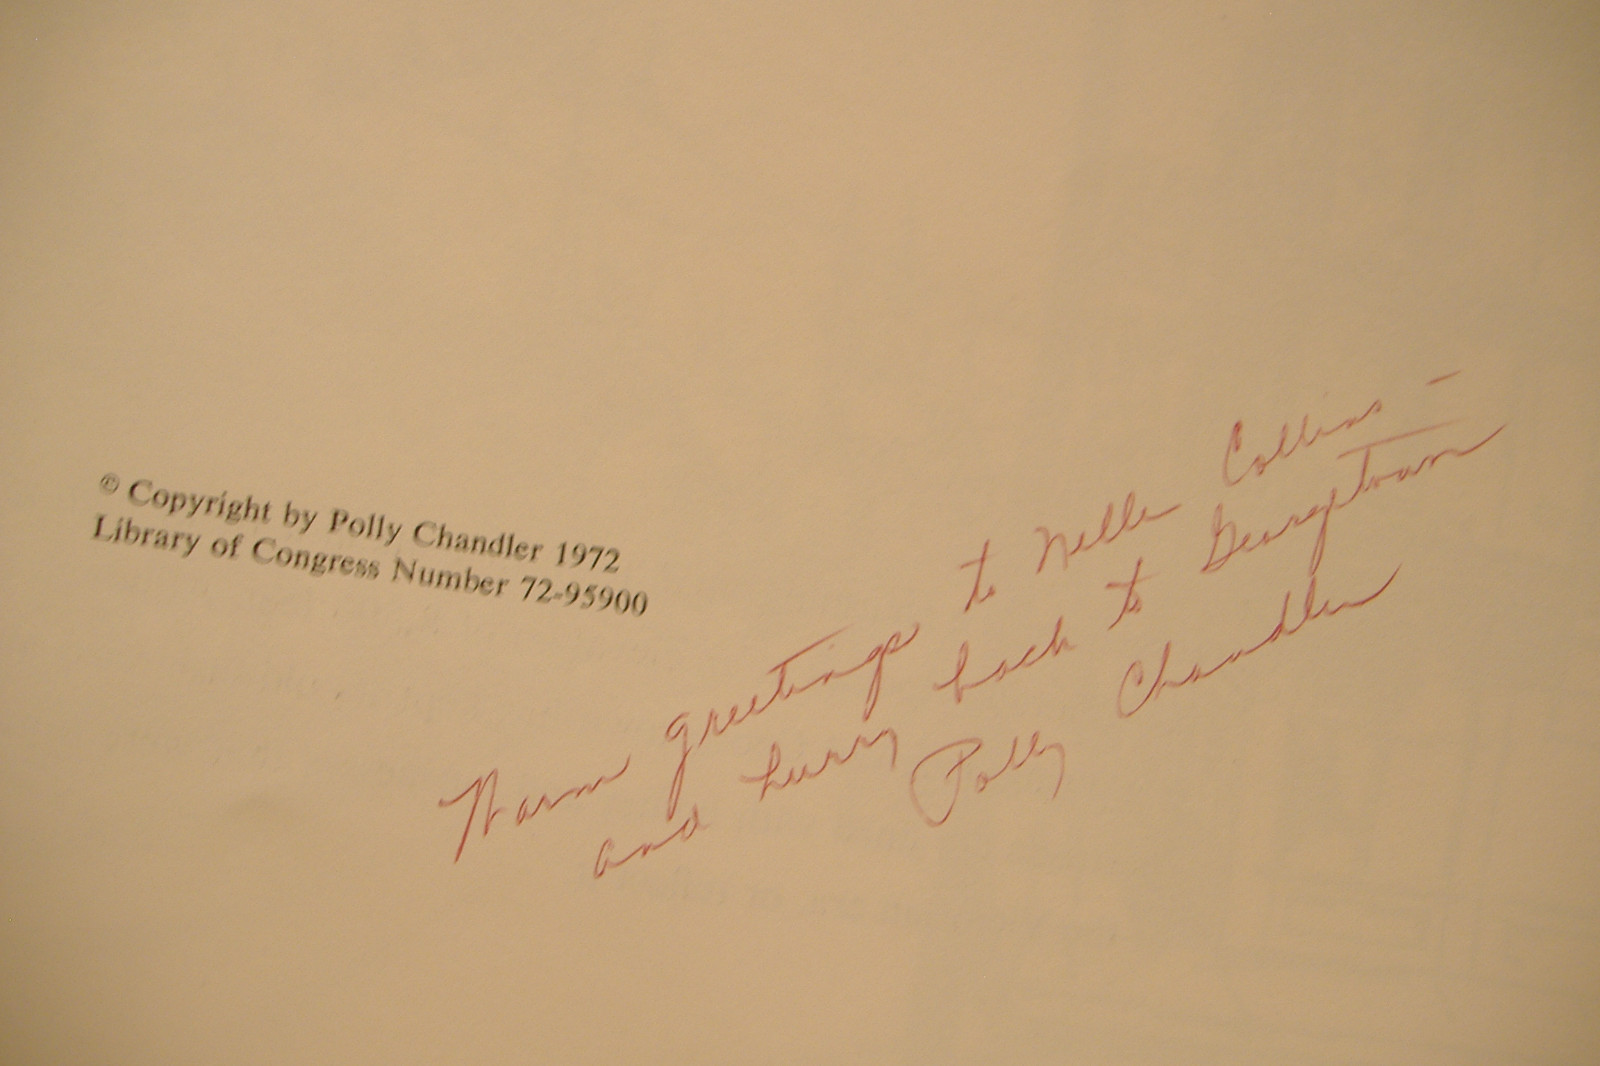 © Copyright by Polly Chandler 1972
Library of Congress Number 72-95900
Warm greetings to Nelle Collins –
and hurry back to Georgetown
Polly Chandler